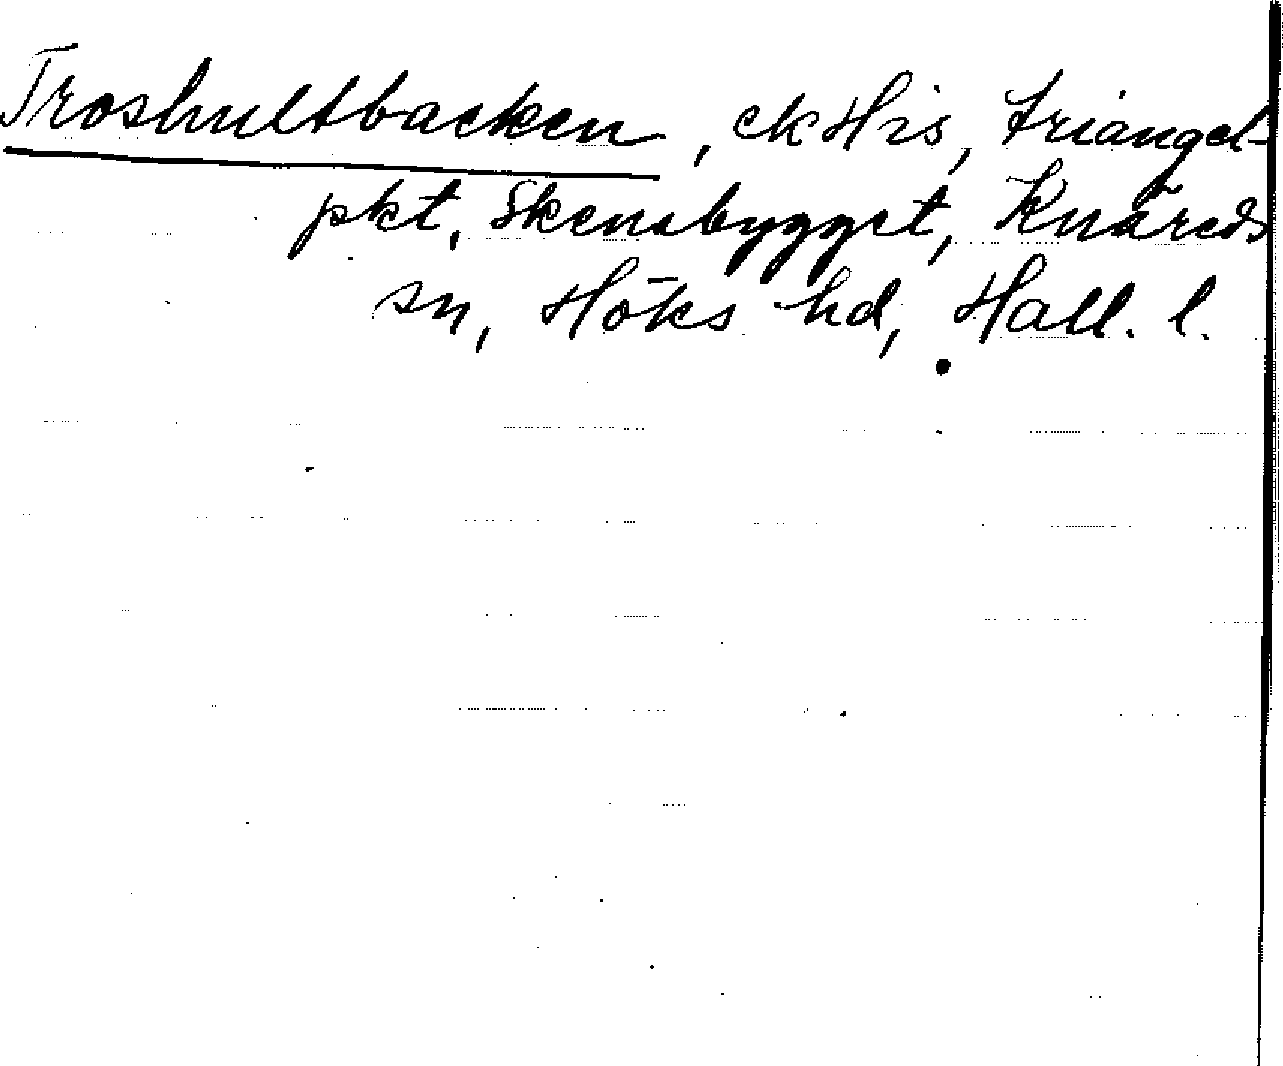 Troshultbacken, ek His, triangel-
pkt, Skenabygget, Knäreds
sn, Höks hd, Hall. l.